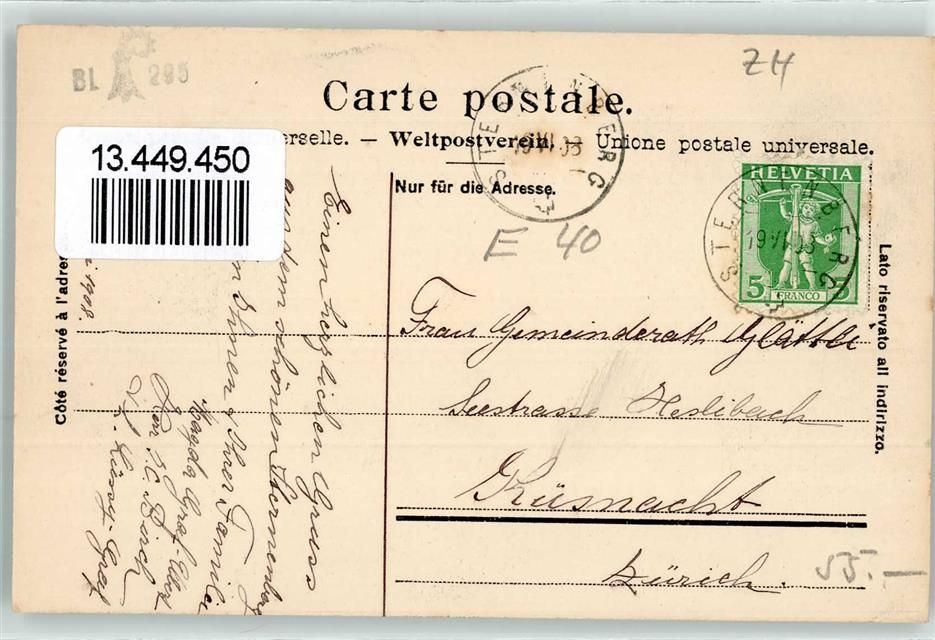 BL 295
Z4
Carte postale.
erselle. — Weltpostverein. — Unione postale universale.
13.449.450
Nur für die Adresse.
STERNENBERG
HELVETIA
5 FRANCO 5
STERNENBERG
E 40
Côté réservé à l'adres
Lato riservato all indirizzo.
Frau Gemeinderath Glättli
Seestrasse Heslibach
Küsnacht
Zürich.
55.—
1908.
Einen herzlichen Gruss
schönen Sternenberg
Ihnen & Ihrer Familie
Magda Graf